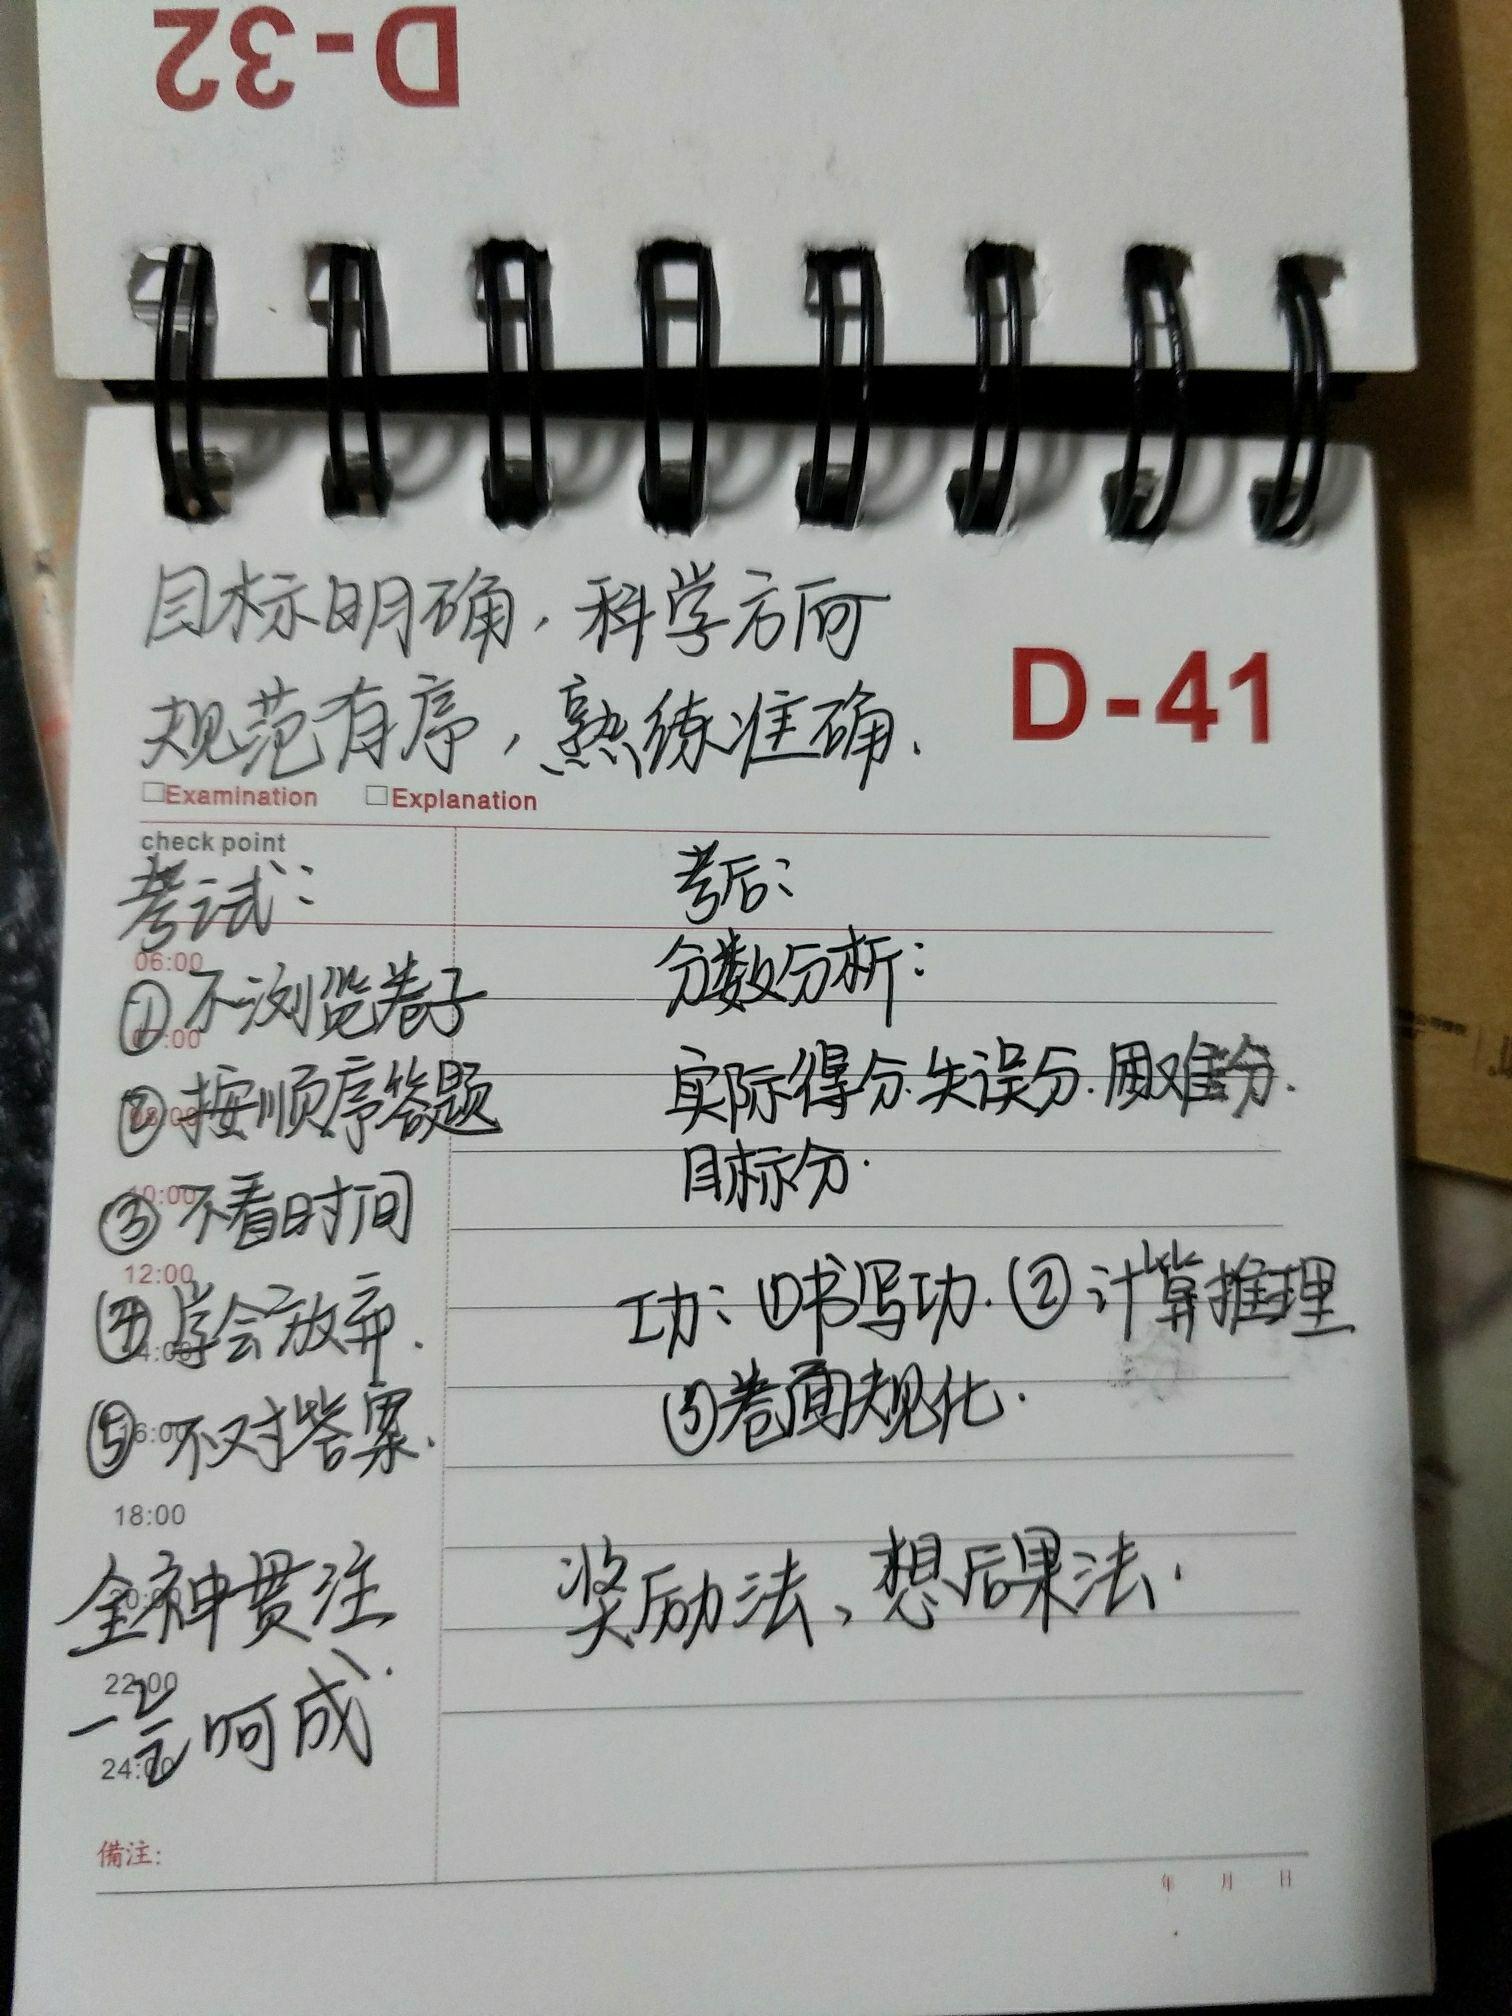 D-32
目标明确，科学方向
规范有序，熟练准确.
D-41
□Examination □Explanation
check point
考试：
06:00
①不浏览卷子
07:00
②按顺序答题
08:00
③不看时间
10:00
12:00
④学会放弃.
14:00
⑤不对答案.
16:00
18:00
全神贯注
20:00
22:00
一气呵成.
24:00
備注:
考后：
分数分析：
实际得分.失误分.困难分.
目标分.
功：①书写功.②计算推理
③卷面规化.
奖励法、想后果法.
年 月 日